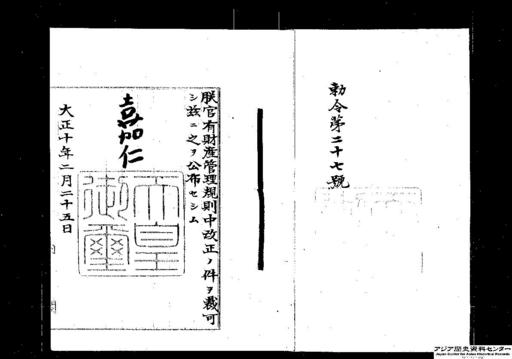 勅令第二十七號
朕官有財產管理規則中改正ノ件ヲ裁可
シ茲ニ之ヲ公布セシム
嘉仁
天皇
御璽
大正十年二月二十五日
内閣
アジア歴史資料センター
Japan Center for Asian Historical Records